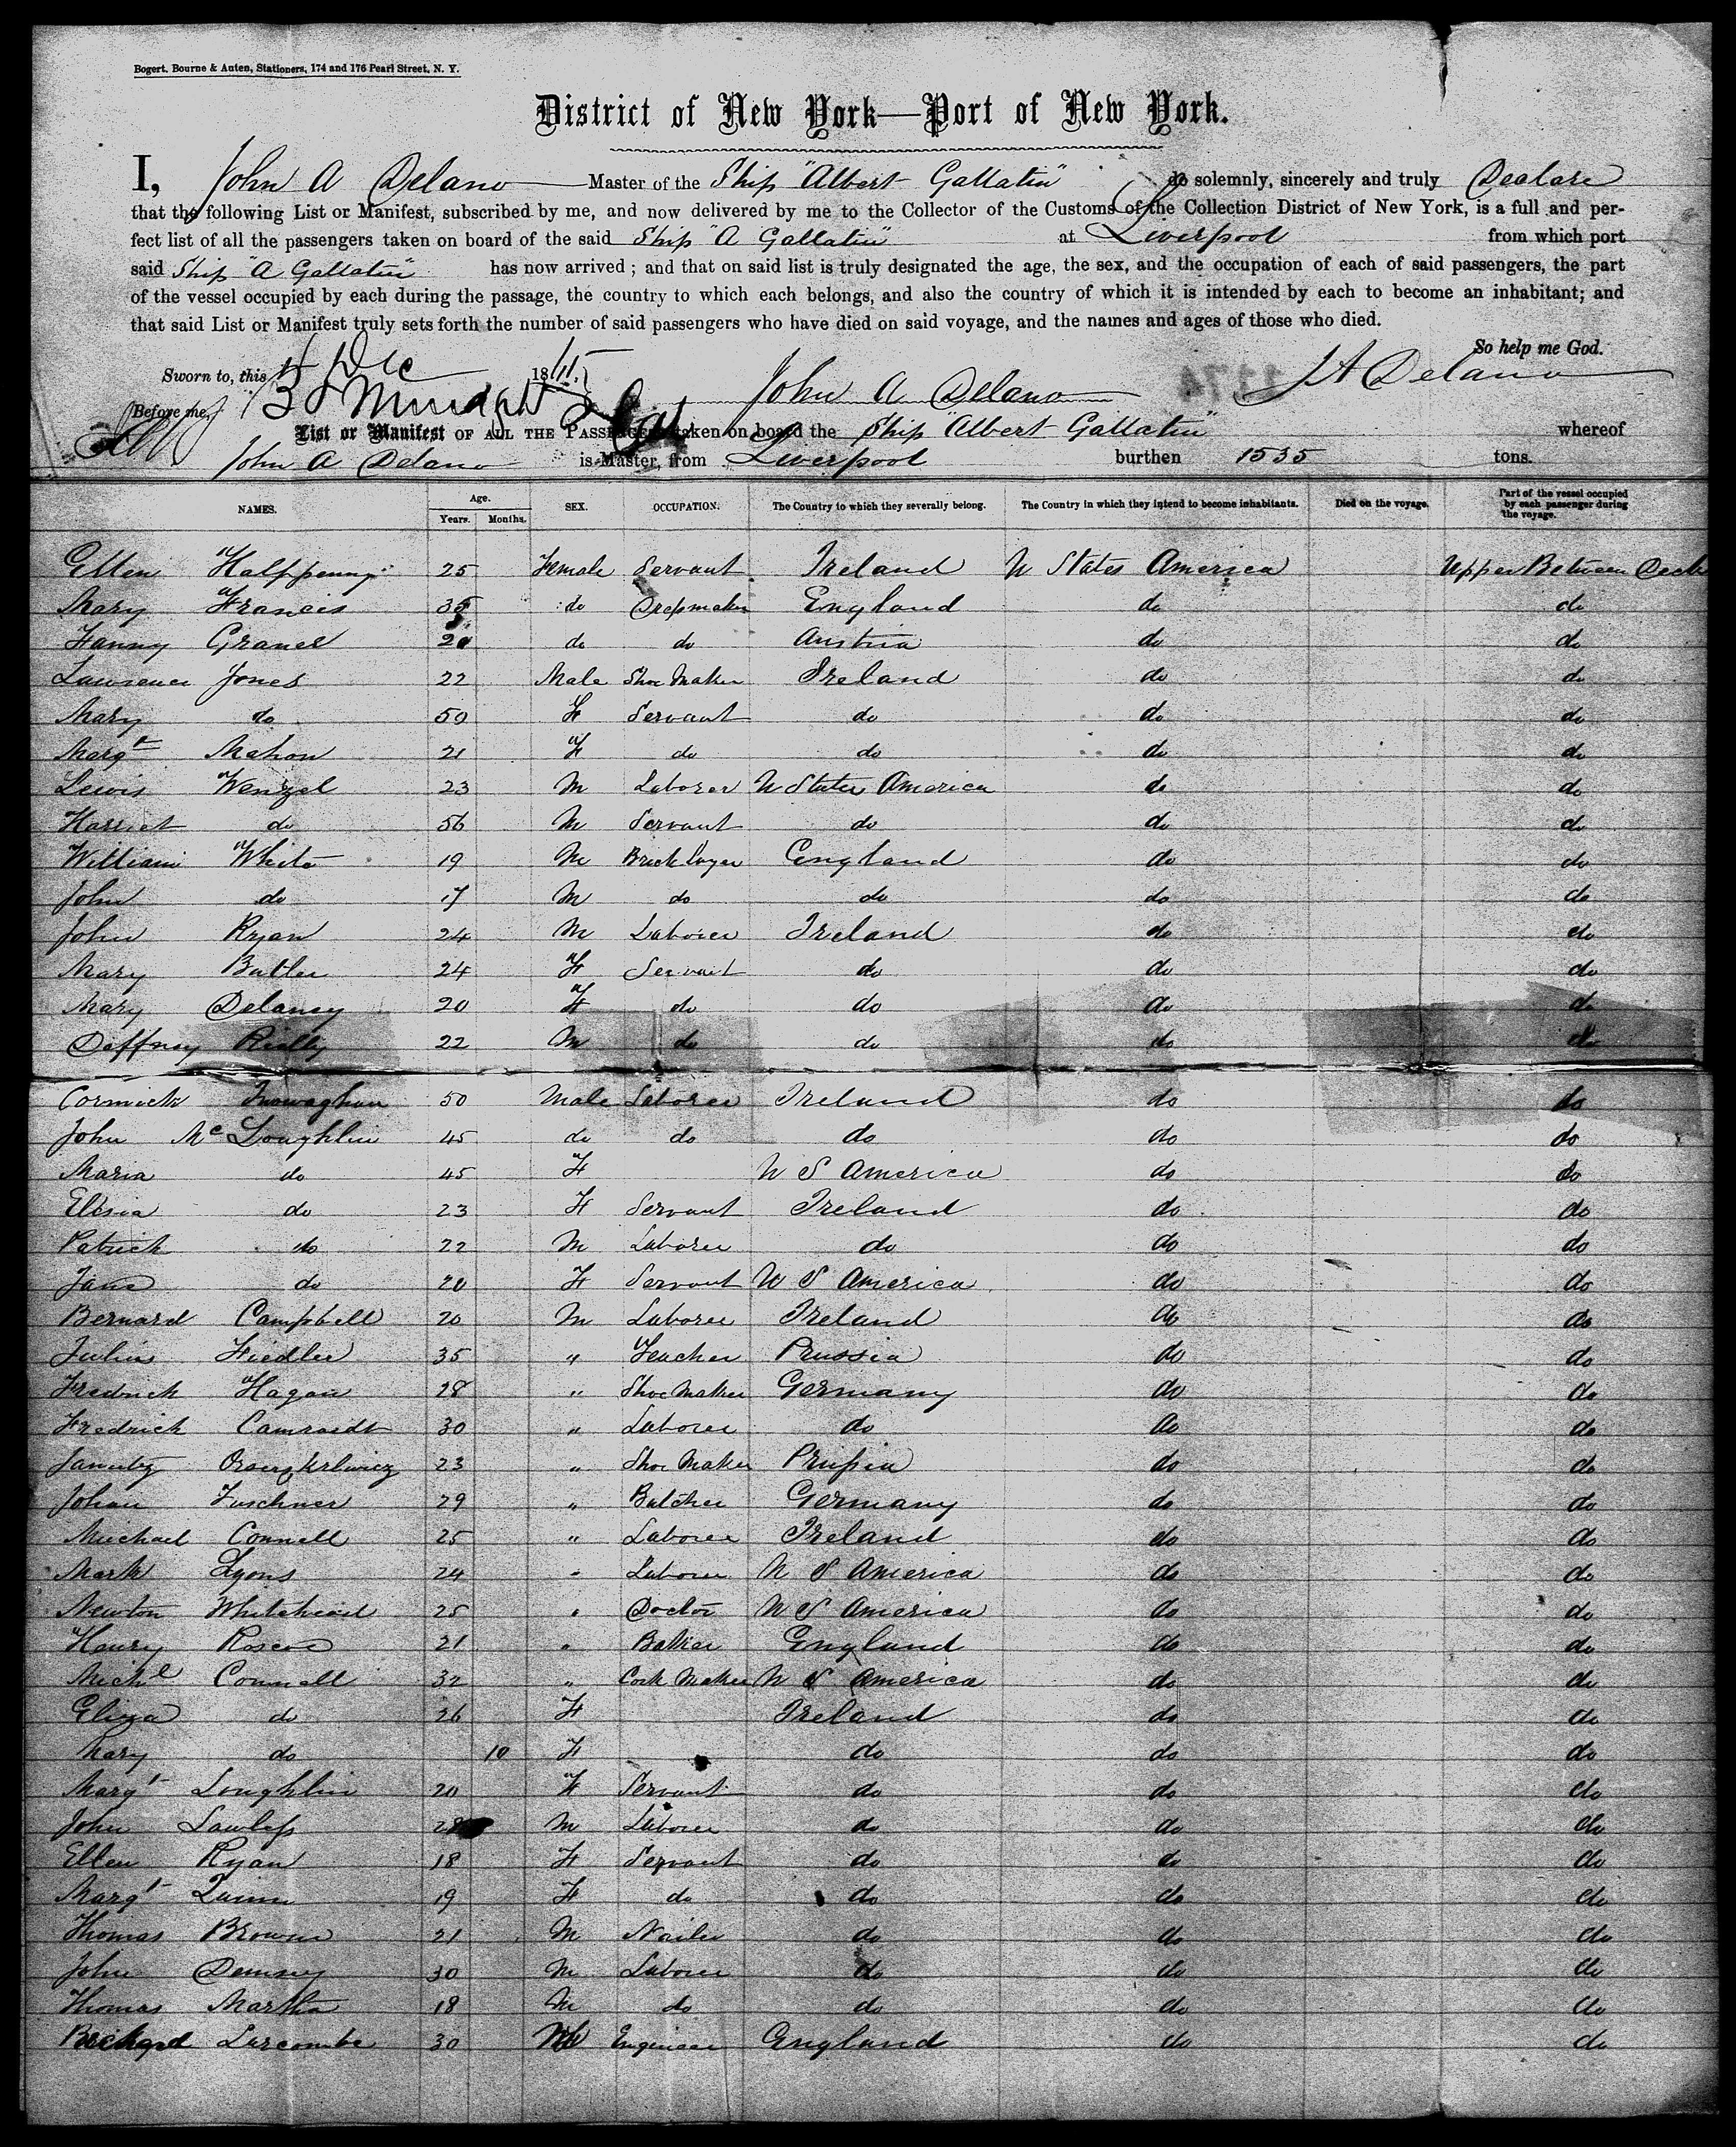 Bogert, Bourne & Auten, Stationers, 174 and 176 Pearl Street, N. Y.
District of New York—Port of New York.
I, John A Delano Master of the Ship "Albert Gallatin" do solemnly, sincerely and truly Declare
that the following List or Manifest, subscribed by me, and now delivered by me to the Collector of the Customs of the Collection District of New York, is a full and per-
fect list of all the passengers taken on board of the said Ship "A Gallatin" at Liverpool from which port
said Ship "A Gallatin" has now arrived; and that on said list is truly designated the age, the sex, and the occupation of each of said passengers, the part
of the vessel occupied by each during the passage, the country to which each belongs, and also the country of which it is intended by each to become an inhabitant; and
that said List or Manifest truly sets forth the number of said passengers who have died on said voyage, and the names and ages of those who died.
So help me God.
Sworn to, this Dec 18
John A Delano J A Delano
Before me,
List or Manifest OF ALL THE PASSENGERS taken on board the Ship "Albert Gallatin" whereof
John A Delano is Master, from Liverpool burthen 1535 tons.
NAMES. Age. Years. Months. SEX. OCCUPATION. The Country to which they severally belong. The Country in which they intend to become inhabitants. Died on the voyage. Part of the vessel occupied by each passenger during the voyage.
Ellen Halfpenny 25 Female Servant Ireland U States America Upper Between Deck
Mary Francis 35 do Dressmaker England do do
Fanny Graner 20 do do Austria do do
Lawrence Jones 22 Male Shoe Maker Ireland do do
Mary do 50 F Servant do do do
Margt Mahon 21 F do do do do
Lewis Wenzel 23 M Laborer U States America do do
Harriet do 56 M Servant do do do
William White 19 M Brick layer England do do
John do 17 M do do do do
John Ryan 24 M Laborer Ireland do do
Mary Butler 24 F Servant do do do
Mary Delaney 20 F do do do do
Daffney Rielly 22 M do do do do
Cormick 50 Male Laborer Ireland do do
John Mc Loughlin 45 do do do do do
Maria do 45 F U S America do do
Elisia do 23 F Servant Ireland do do
Patrick do 22 M Laborer do do do
Jane do 20 F Servant U S America do do
Bernard Campbell 20 M Laborer Ireland do do
Julius Fiedler 35 " Teacher Prussia do do
Fredrick Hagan 28 " Shoe Maker Germany do do
Fredrick 30 " Laborer do do do
23 " Shoe Maker Prussia do do
Johan Fuschner 29 " Butcher Germany do do
Michael Connell 25 " Laborer Ireland do do
Mark Lyons 24 " Laborer U S America do do
Newton Whitehead 25 " Doctor U S America do do
Henry Roscoe 21 " Baker England do do
Michl Connell 32 " Cork Maker U S America do do
Eliza do 26 F Ireland do do
Mary do 10 F do do do
Margt Loughlin 20 F Servant do do do
John Lawless 28 M Laborer do do do
Ellen Ryan 18 F Servant do do do
Margt Quinn 19 F do do do do
Thomas Browne 21 M Nailer do do do
John Demsey 30 M Laborer do do do
Thomas Martha 18 M do do do do
Larcombe 30 M Engineer England do do